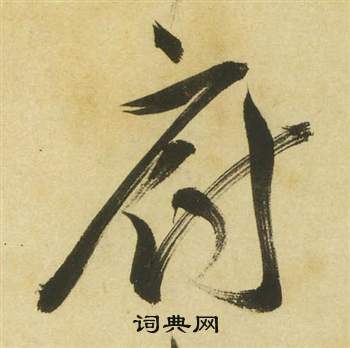 府
词典网